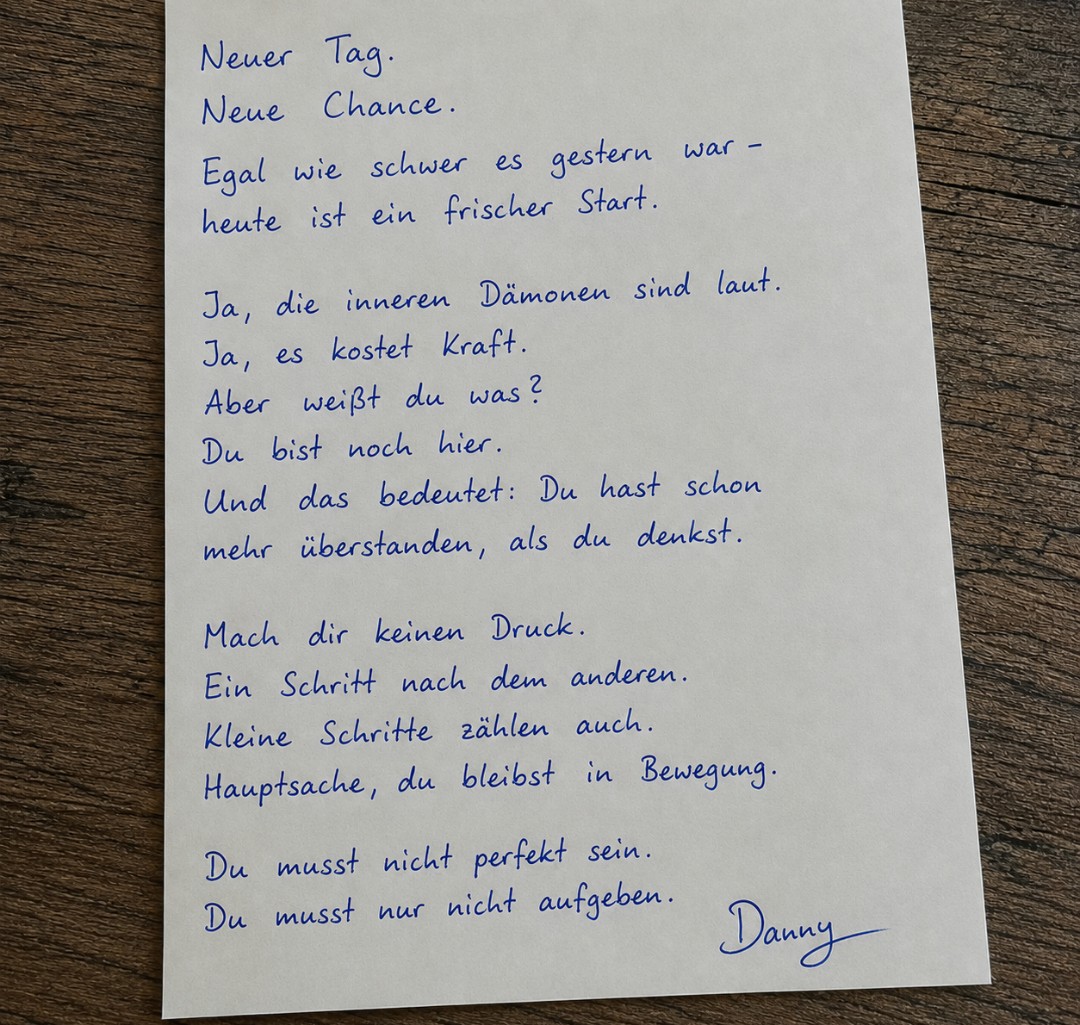 Neuer Tag.
Neue Chance.
Egal wie schwer es gestern war –
heute ist ein frischer Start.
Ja, die inneren Dämonen sind laut.
Ja, es kostet Kraft.
Aber weißt du was?
Du bist noch hier.
Und das bedeutet: Du hast schon
mehr überstanden, als du denkst.
Mach dir keinen Druck.
Ein Schritt nach dem anderen.
Kleine Schritte zählen auch.
Hauptsache, du bleibst in Bewegung.
Du musst nicht perfekt sein.
Du musst nur nicht aufgeben.
Danny